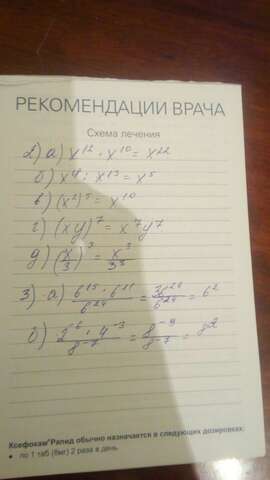 РЕКОМЕНДАЦИИ ВРАЧА
Схема лечения
2) а) x¹² · x¹⁰ = x²²
б) x⁴ : x¹³ = x⁵
в) (x²)⁵ = x¹⁰
г) (xy)⁷ = x⁷y⁷
д) (x/3)³ = x³/3³
3) а) 6¹⁵ · 6¹¹/6²⁴ = 36²⁶/6²⁴ = 6²
б) 2⁻⁶ · 4⁻³/8⁻⁷ = 8⁻⁹/8⁻⁷ = 8²
Ксефокам Рапид обычно назначается в следующих дозировках:
• по 1 таб (8мг) 2 раза в день